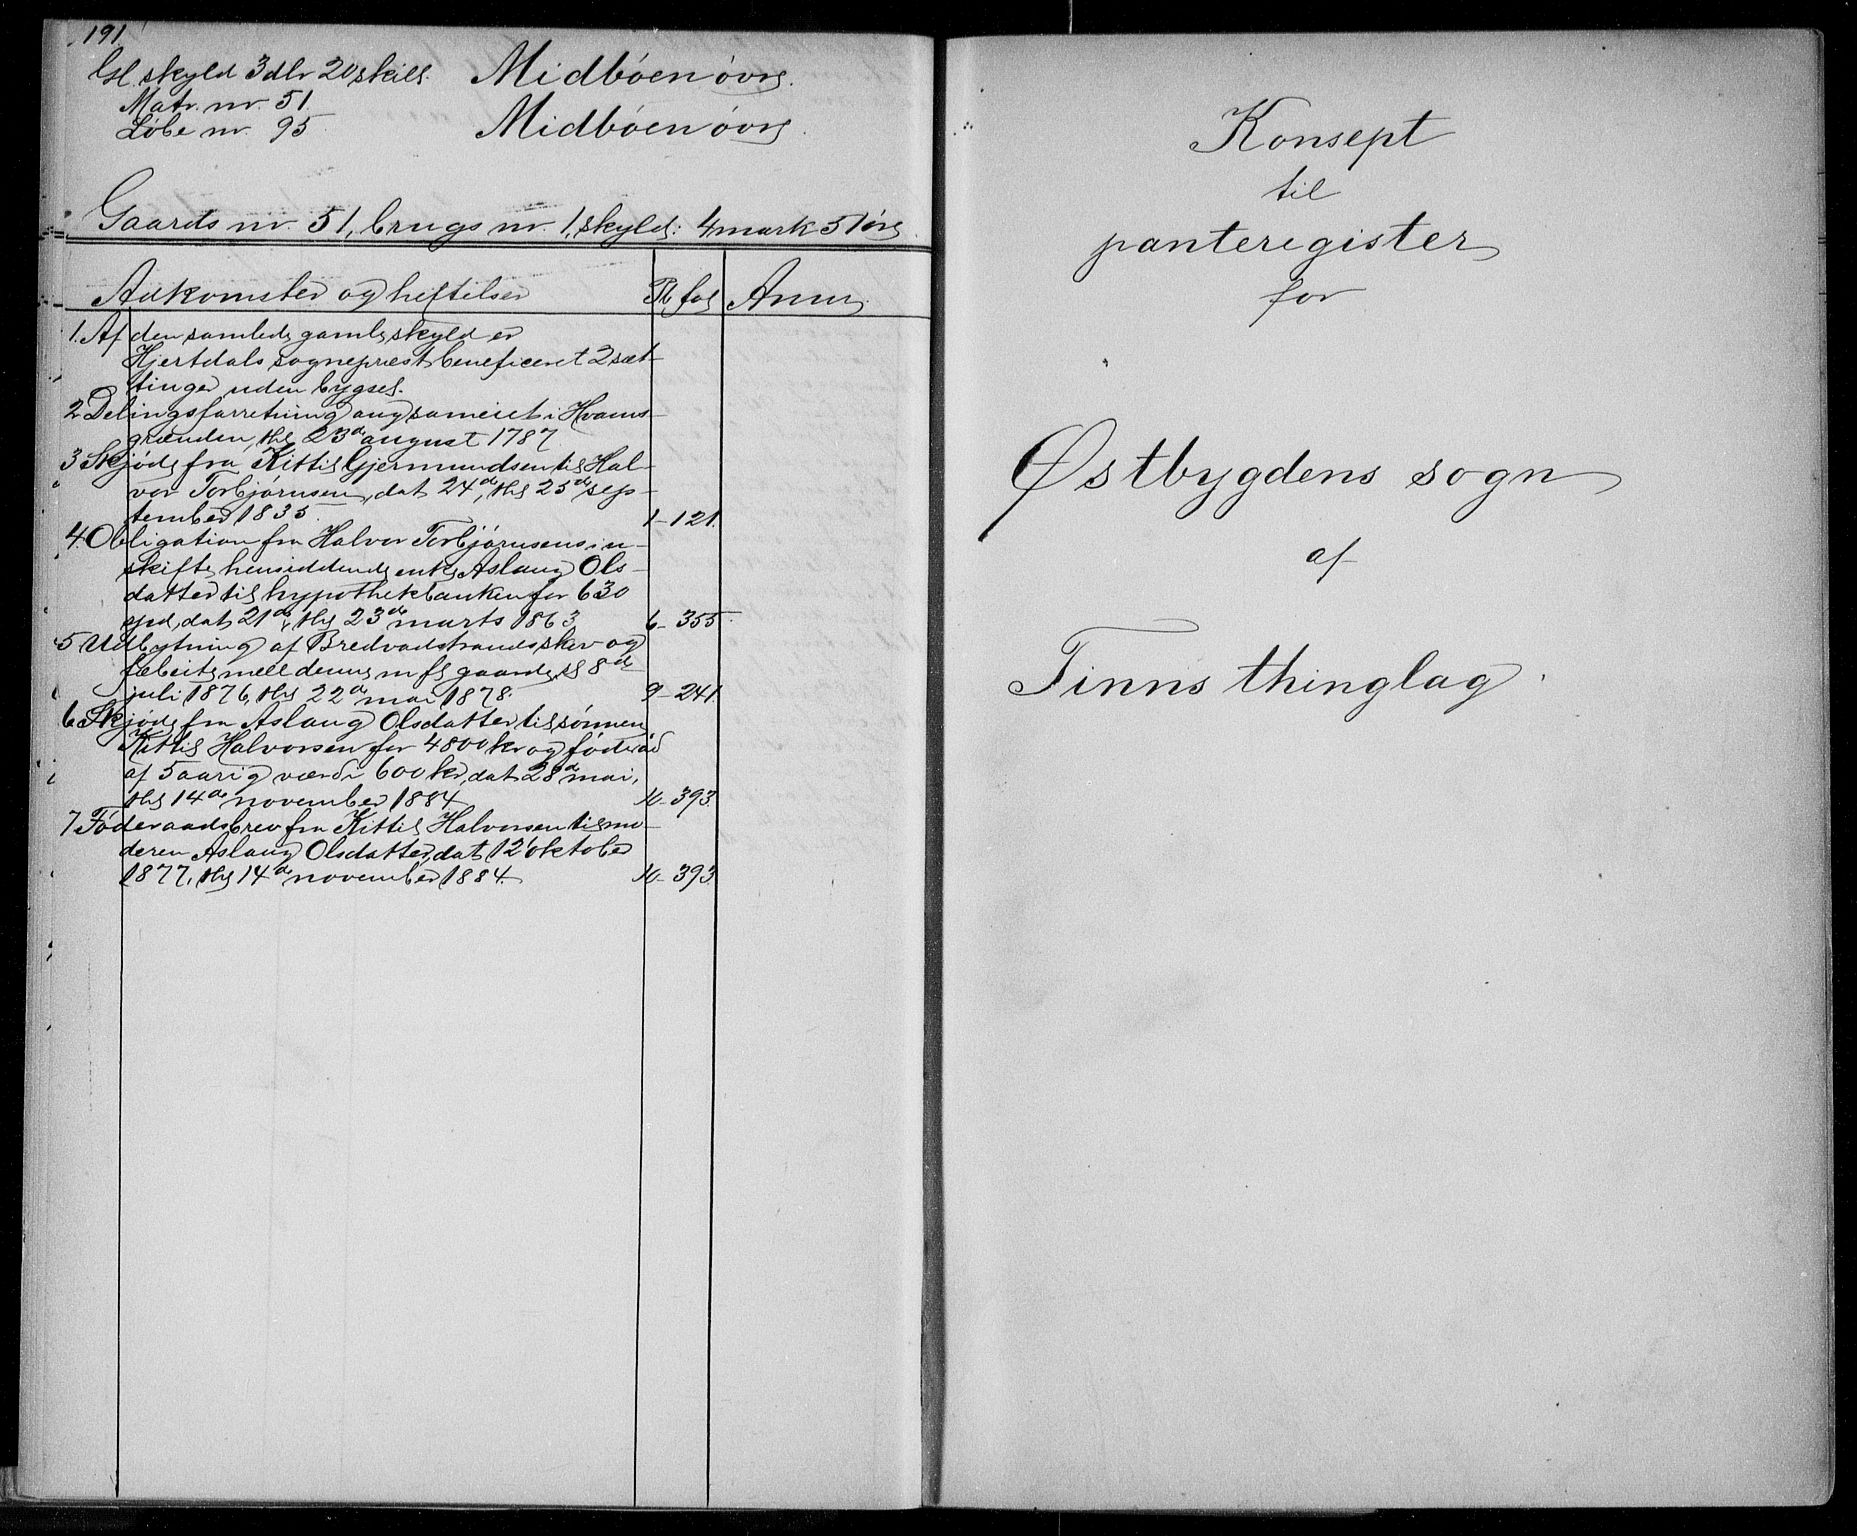 191
Gl. skyld 3 dlr 20 skill. Midbøen øvre.
Matr. nr. 51.
Løbe nr. 95. Midbøen øvre.
Gaards nr. 51, brugs nr. 1, skyld: 4 mark 51 øre.
Adkomster og heftelser Pb fol Anm.
1. Af den samlede gamle skyld er
Hjertdals sogneprest beneficeret 2 sæt-
tinger uden bygsel.
2 Delingsforretning ang sameiet i Hvams-
grænden, thl 23de august 1787
3 Skjøde fra Kittil Gjermundsen til Hal-
vor Torbjørnsen, dat 24de, thl 25de sep-
tember 1835. 1 - 121.
4. Obligation fra Halvor Torbjørnsens i u-
skifte hensiddende enke Aslaug Ols-
datter til hypothekbanken for 630
spd, dat 21de, thl 23de marts 1863 6 - 355.
5 Udbytning af Bredvadstrands skov og
fæbeite mell denne m fl gaarde, sl 8de
juli 1876, thl 22de mai 1878. 9 - 241.
6 Skjøde fra Aslaug Olsdatter til sønnen
Kittil Halvorsen for 4800 kr og føderåd
af 5 aarig værdi 600 kr, dat 28de mai,
thl 14de november 1884 10 - 393.
7 Føderaadsbrev fra Kittil Halvorsen til mo-
deren Aslaug Olsdatter, dat 12 oktober
1877, thl 14de november 1884. 10 - 393
Konsept
til
panteregister
for
Østbygdens sogn
af
Tinns thinglag.